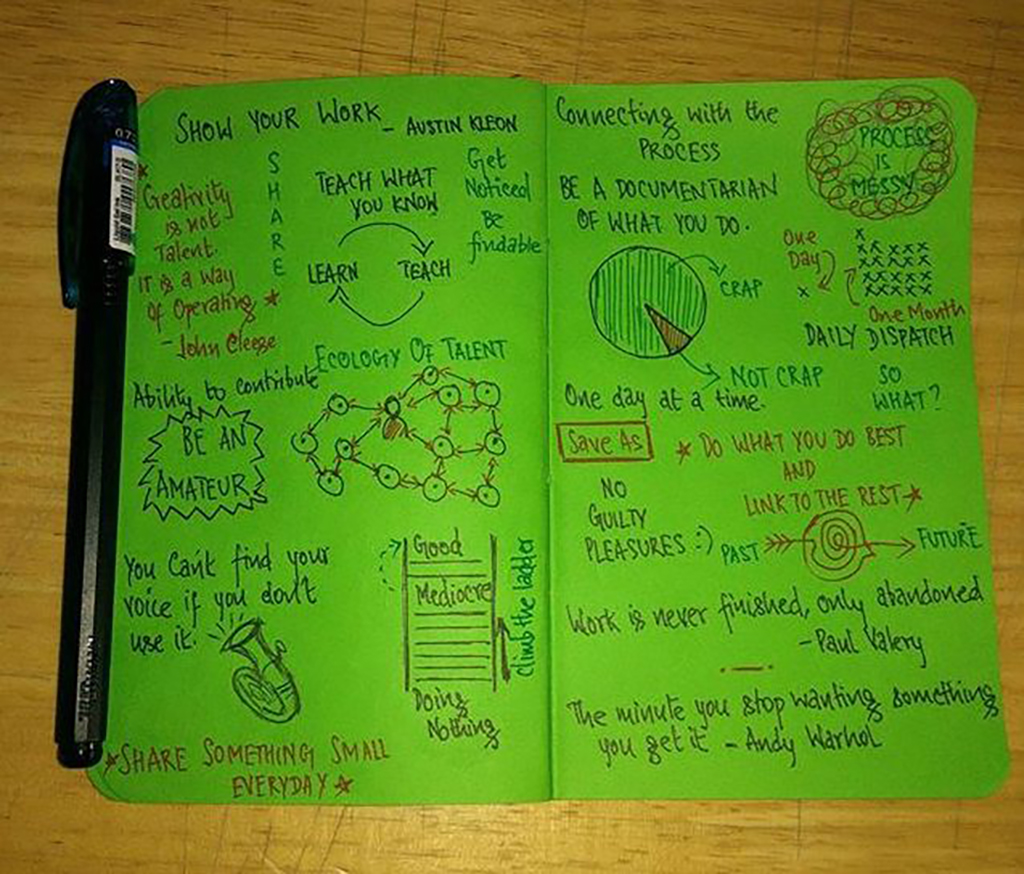 SHOW YOUR WORK - AUSTIN KLEON
* Creativity
is not
Talent.
It is a way
of Operating *
- John Cleese
SHARE
TEACH WHAT
YOU KNOW
LEARN TEACH
Get
Noticed
Be
findable
ECOLOGY OF TALENT
Ability to contribute
BE AN
AMATEUR
You Can't find your
voice if you don't
use it.
Good
Mediocre
Doing
Nothing
Climb the ladder
*SHARE SOMETHING SMALL
EVERYDAY *
Connecting with the
PROCESS
PROCESS
IS
MESSY
BE A DOCUMENTARIAN
OF WHAT YOU DO.
CRAP
NOT CRAP
One
Day
x
One Month
DAILY DISPATCH
One day at a time.
SO
WHAT?
Save As
* DO WHAT YOU DO BEST
AND
LINK TO THE REST *
NO
GUILTY
PLEASURES :)
PAST FUTURE
Work is never finished, only abandoned
- Paul Valery
The minute you stop wanting something
you get it - Andy Warhol